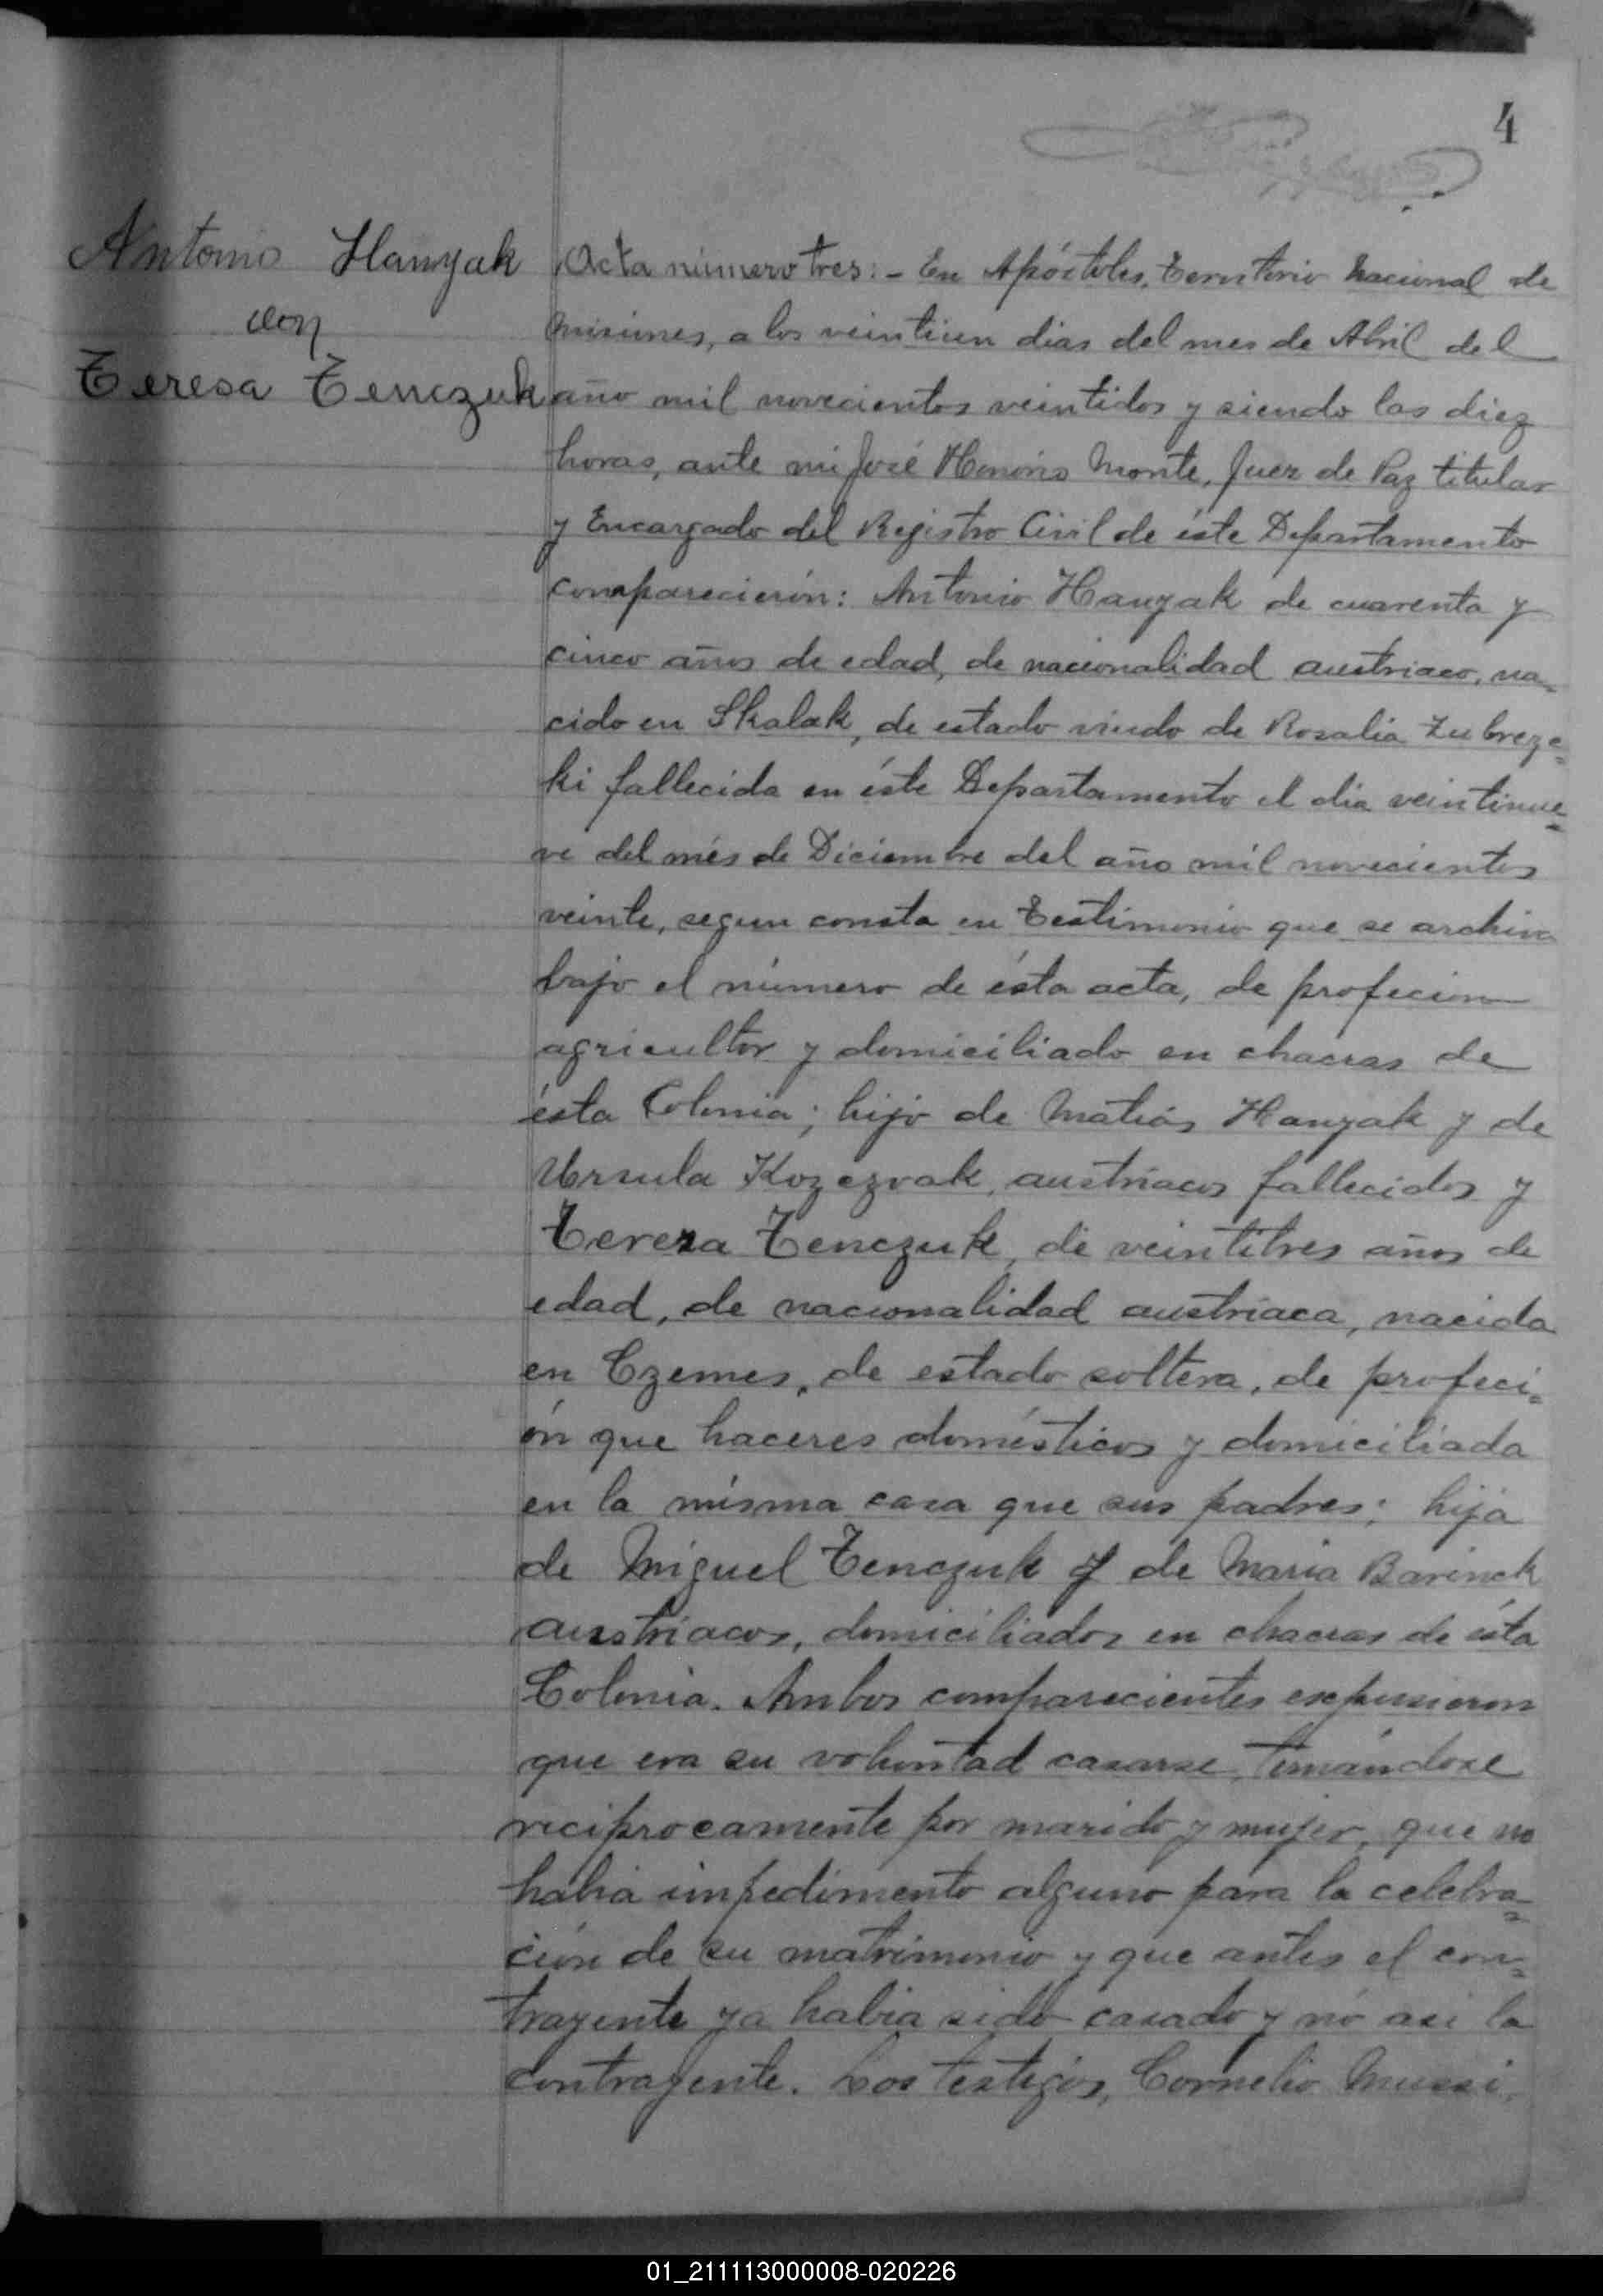 4
Antonio Hanyak
con
Teresa Tenczuk
Acta número tres:- En Apóstoles, Territorio Nacional de
Misiones, a los veintiun dias del mes de Abril del
año mil novecientos veintidos y siendo las diez
horas, ante mi José Honorio Monte, Juez de Paz titular
y Encargado del Registro Civil de éste Departamento
comparecierón: Antonio Hanyak de cuarenta y
cinco años de edad, de nacionalidad austriaco, na=
cido en Skalak, de estado viudo de Rosalia Zubreze=
ki fallecida en éste Departamento el dia veintinue=
ve del més de Diciembre del año mil novecientos
veinte, segun consta en testimonio que se archiva
bajo el número de ésta acta, de profecion
agricultor y domiciliado en chacras de
ésta Colonia; hijo de Matias Hanyak y de
Ursula Kozezvak, austriacos fallecidos y
Teresa Tenczuk, de veintitres años de
edad, de nacionalidad austriaca, nacida
en Czemes, de estado soltera, de profeci=
ón que haceres domésticos y domiciliada
en la misma casa que sus padres; hija
de Miguel Tenczuk y de Maria Barinek
austriacos, domiciliados en chacras de ésta
Colonia. Ambos comparecientes expusieron
que era su voluntad casarse, tomándose
reciprocamente por marido y mujer, que no
habia impedimento alguno para la celebra=
ción de su matrimonio y que antes el con=
trayente ya habia sido casado y nó asi la
contrayente. Los testigos, Cornelio Mussi,
01_211113000008-020226